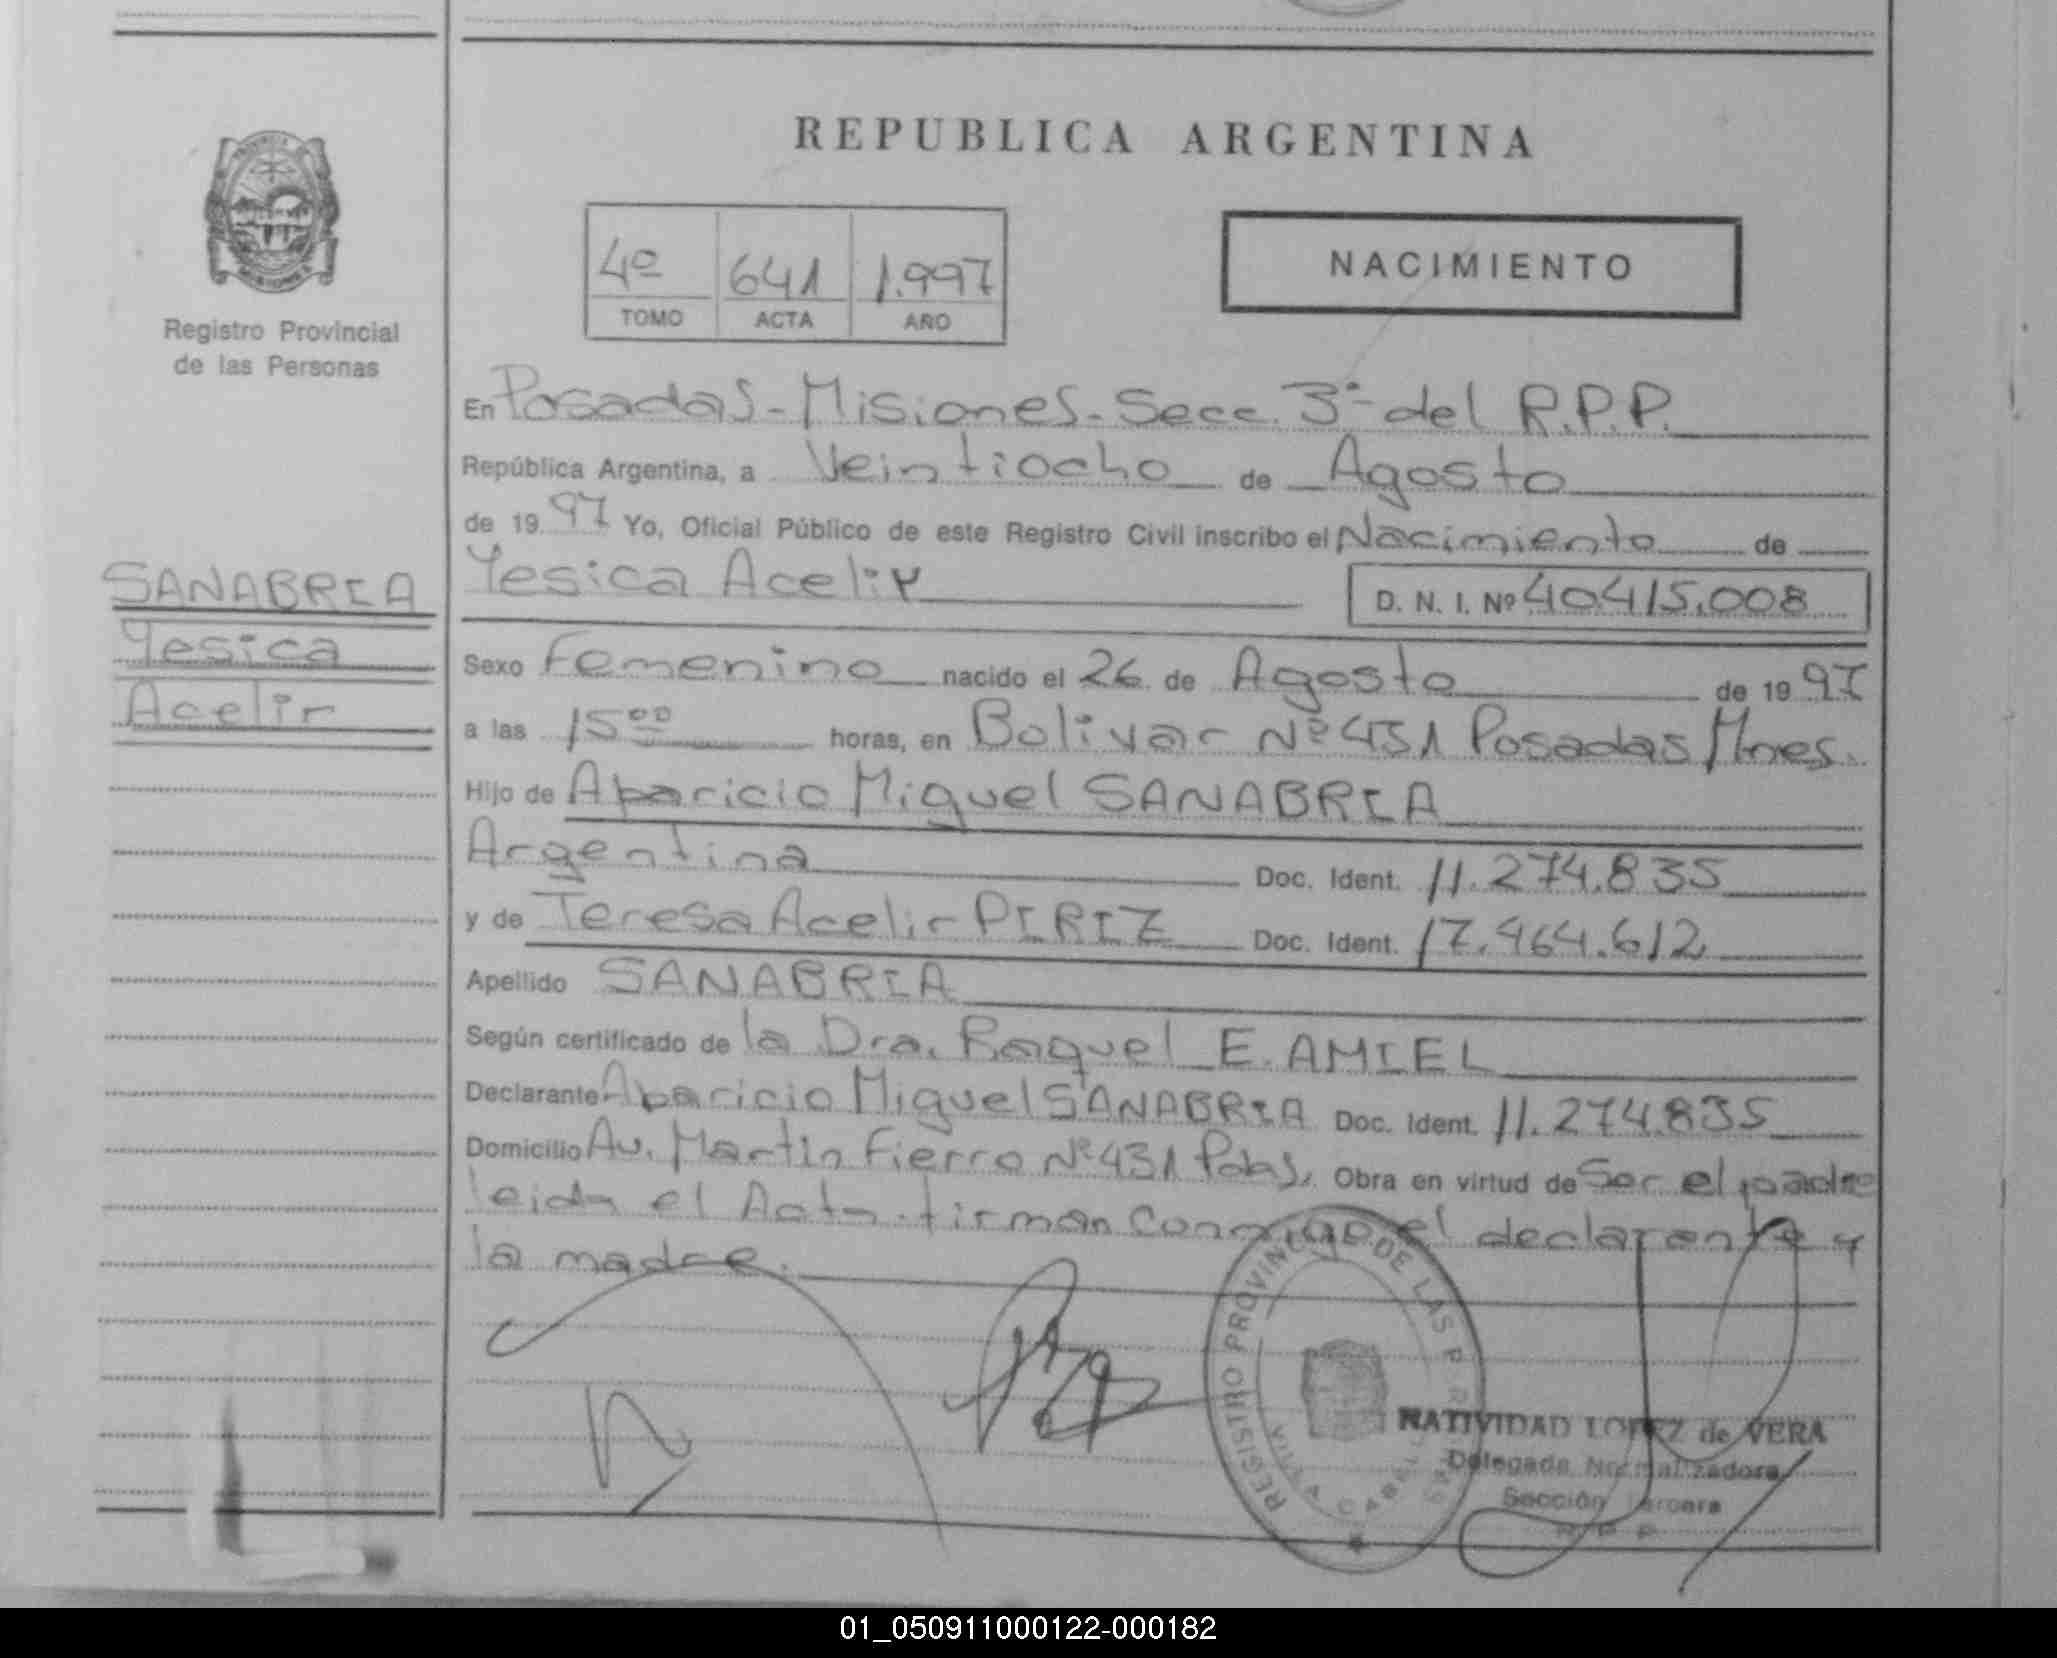 REPUBLICA ARGENTINA
4º 641 1.997
TOMO ACTA AÑO
NACIMIENTO
Registro Provincial
de las Personas
SANABRIA
Yesica
Acelir
En Posadas - Misiones - Secc. 3ª del R.P.P.
República Argentina, a Veintiocho de Agosto
de 1997 Yo, Oficial Público de este Registro Civil inscribo el Nacimiento de
Yesica Acelir
D. N. I. Nº 40.415.008
Sexo Femenino nacido el 26 de Agosto de 1997
a las 15⁰⁰ horas, en Bolivar Nº 431 Posadas Mnes.
Hijo de Aparicio Miguel SANABRIA
Argentina Doc. Ident. 11.274.835
y de Teresa Acelir PIRIZ Doc. Ident. 17.464.612
Apellido SANABRIA
Según certificado de la Dra. Raquel E. AMIEL
Declarante Aparicio Miguel SANABRIA Doc. Ident. 11.274.835
Domicilio Av. Martin Fierro Nº 431 Pdas. Obra en virtud de Ser el padre
leida el Acta firman conmigo el declarante y
la madre.
REGISTRO PROVINCIAL DE LAS PERSONAS
VILLA CABELLO
NATIVIDAD LOPEZ de VERA
Delegada Normalizadora
Sección Tercera
R. P. P.
01_050911000122-000182